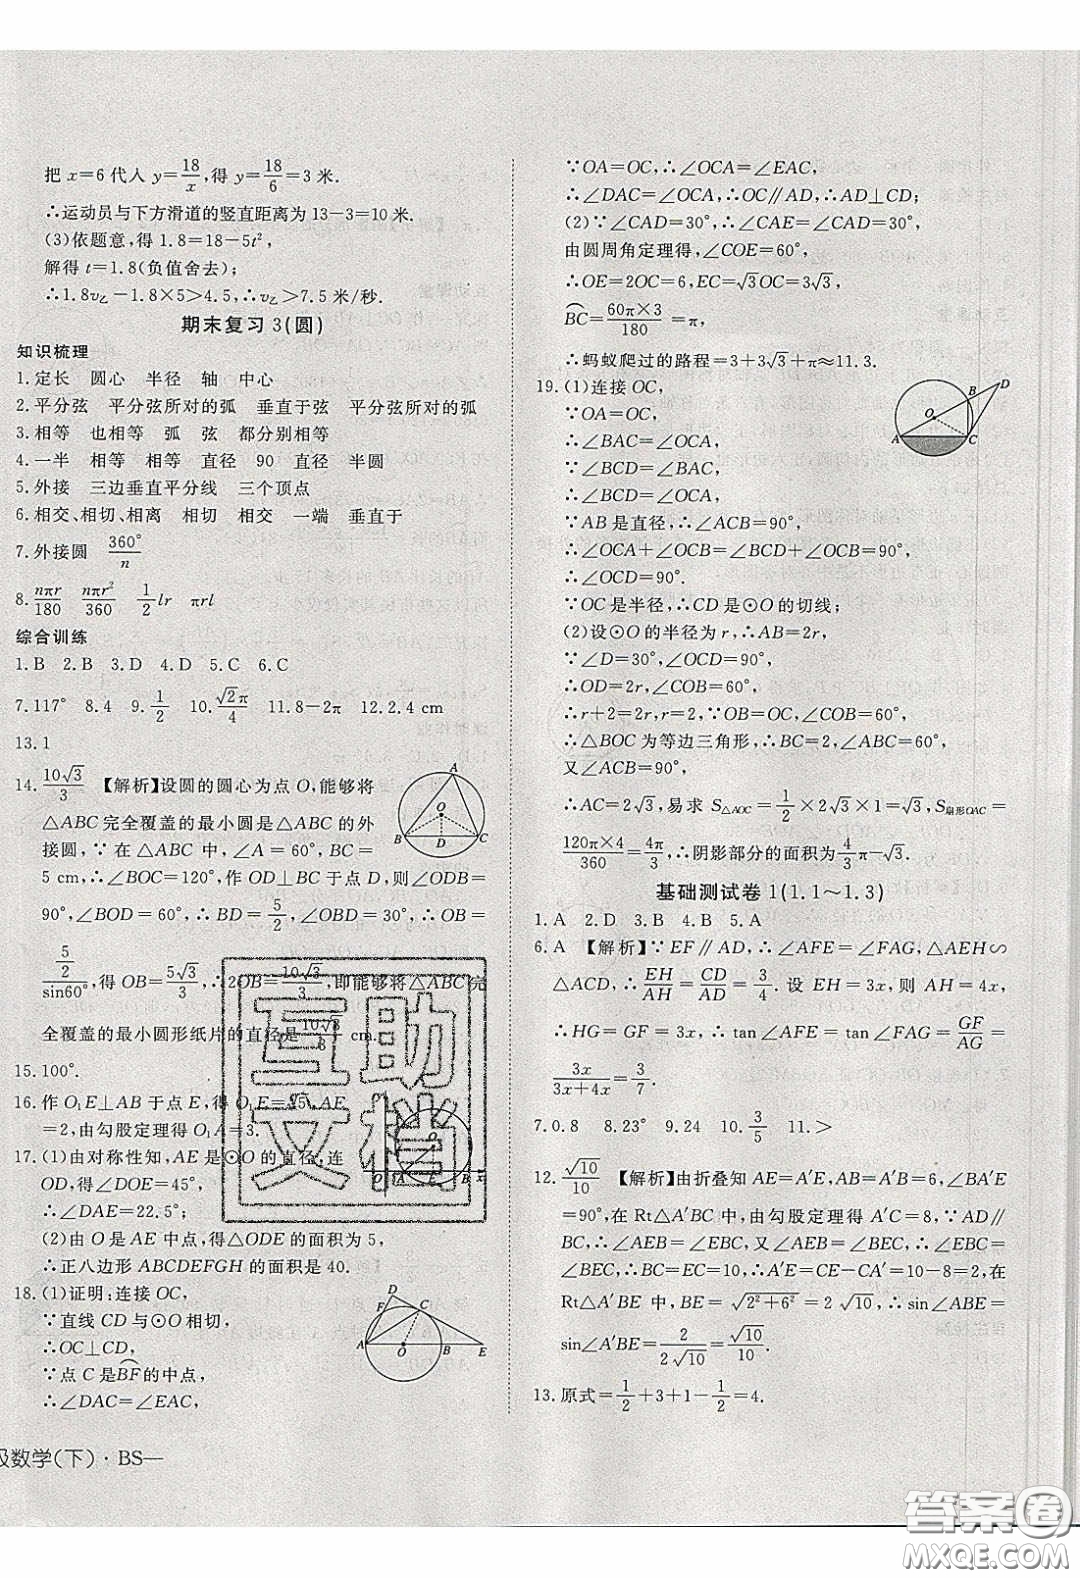 把 x=6 代人 y=18/x, 得 y=18/6=3 米.
∴运动员与下方滑道的竖直距离为 13-3=10 米.
(3)依题意,得 1.8=18-5t²,
解得 t=1.8(负值舍去);
∴1.8v乙-1.8×5>4.5,∴v乙>7.5 米/秒.
期末复习 3(圆)
知识梳理
1.定长 圆心 半径 轴 中心
2.平分弦 平分弦所对的弧 垂直于弦 平分弦所对的弧
3.相等 也相等 弧 弦 都分别相等
4.一半 相等 相等 直径 90 直径 半圆
5.外接 三边垂直平分线 三个顶点
6.相交、相切、相离 相切 相交 一端 垂直于
7.外接圆 360°/n
8. nπr/180 nπr²/360 1/2 lr πrl
综合训练
1.B 2.B 3.D 4.D 5.C 6.C
7.117° 8.4 9. 1/2 10. √2π/4 11.8-2π 12.2.4 cm
13.1
14. 10√3/3 【解析】设圆的圆心为点 O,能够将
△ABC 完全覆盖的最小圆是△ABC 的外
接圆,∵在△ABC 中,∠A=60°,BC=
5 cm,∴∠BOC=120°,作 OD⊥BC 于点 D,则∠ODB=
90°,∠BOD=60°,∴BD=5/2,∠OBD=30°,∴OB=
(5/2)/sin60°,得 OB=5√3/3,∴2OB=10√3/3,即能够将△ABC 完
全覆盖的最小圆形纸片的直径是 10√3/3 cm.
15.100°.
16.作 O₁E⊥AB 于点 E,得 O₁E=√5,AE
=2,由勾股定理得 O₁A=3.
17.(1)由对称性知,AE 是⊙O 的直径,连
OD,得∠DOE=45°,
∴∠DAE=22.5°;
(2)由 O 是 AE 中点,得△ODE 的面积为 5,
∴正八边形 ABCDEFGH 的面积是 40.
18.(1)证明:连接 OC,
∵直线 CD 与⊙O 相切,
∴OC⊥CD,
∵点 C 是BF的中点,
∴∠DAC=∠EAC,
级数学(下)·BS—
∵OA=OC,∴∠OCA=∠EAC,
∴∠DAC=∠OCA,∴OC∥AD,∴AD⊥CD,
(2)∵∠CAD=30°,∴∠CAE=∠CAD=30°,
由圆周角定理得,∠COE=60°,
∴OE=2OC=6,EC=√3OC=3√3,
BC=60π×3/180=π,
∴蚂蚁爬过的路程=3+3√3+π≈11.3.
19.(1)连接 OC,
∵OA=OC,
∴∠BAC=∠OCA,
∵∠BCD=∠BAC,
∴∠BCD=∠OCA,
∵AB 是直径,∴∠ACB=90°,
∴∠OCA+∠OCB=∠BCD+∠OCB=90°,
∴∠OCD=90°.
∵OC 是半径,∴CD 是⊙O 的切线;
(2)设⊙O 的半径为 r,∴AB=2r,
∵∠D=30°,∠OCD=90°,
∴OD=2r,∠COB=60°,
∴r+2=2r,∴r=2,∵OB=OC,∠COB=60°,
∴△BOC 为等边三角形,∴BC=2,∠CBO=60°,
又∠ACB=90°,
∴AC=2√3,易求 S△AOC=1/2×2√3×1=√3,S扇形OAC=
120π×4/360=4π/3,∴阴影部分的面积为 4/3π-√3.
基础测试卷 1(1.1～1.3)
1.A 2.D 3.B 4.B 5.A
6.A 【解析】∵EF∥AD,∴∠AFE=∠FAG,△AEH∽
△ACD,∴EH/AH=CD/AD=3/4. 设 EH=3x,则 AH=4x,
∴HG=GF=3x,∴tan∠AFE=tan∠FAG=GF/AG=
3x/(3x+4x)=3/7.
7.0.8 8.23° 9.24 10. 3/5 11.>
12. √10/10 【解析】由折叠知 AE=A′E,AB=A′B=6,∠BA′E
=90°,在 Rt△A′BC 中,由勾股定理得 A′C=8,∵AD∥
BC,∴∠DEC=∠ECB,又∠DEC=∠AEB,∴∠EBC=
∠BEC,∴BC=CE=10,∴A′E=CE-CA′=10-8=2,在
Rt△A′BE 中,BE=√(2²+6²)=2√10,∴sin∠ABE=
sin∠A′BE=2/(2√10)=√10/10.
13.原式=1/2+3+1-1/2=4.
互助
文档
答案圈
MXQE.COM